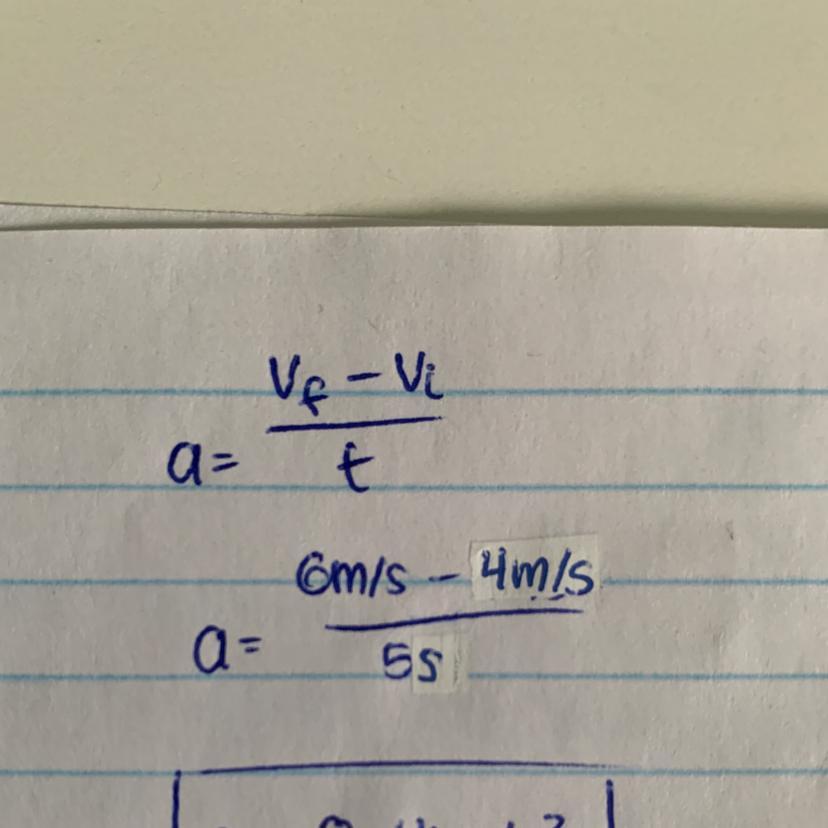 a = (V_f - V_i) / t
a = (6m/s - 4m/s) / 5s